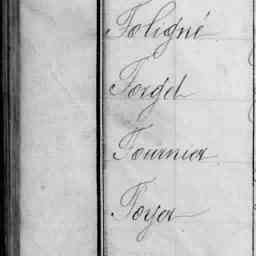 Foligné
Forget
Fournier
Foyer